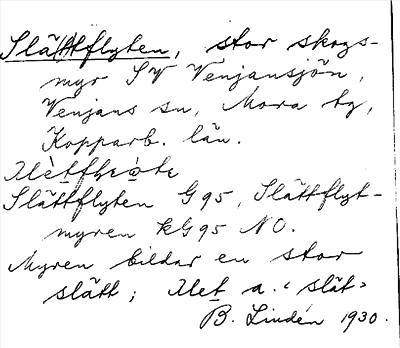 Slä(t)tflyten, stor skogs-
myr SV Venjansjön,
Venjans sn, Mora tg,
Kopparb. län.
Slättflyten G95, Slättflyt-
myren kG95 NO.
Myren bildar en stor
slätt; a. "slät"
B. Lindén 1930.